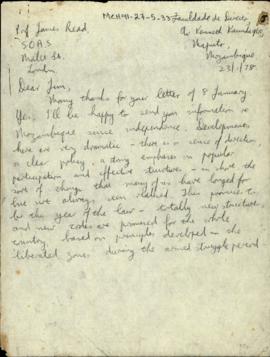 Prof James Read
S.O.A.S
Malet St.
London
MCH91-27-5-33
Faculdade de Direito
Av Kenneth Kaunda 960
Maputo
Mozambique
23/1/78
5
Dear Jim,
Many thanks for your letter of 8 January
Yes, I'll be happy to send you information on
Mozambique since independence. Developments
here are very dramatic - there is a sense of direction,
a clear policy, a strong emphasis on popular
participation and effective structures - in short the
sort of change that many of us have longed for
but not always seen realised. This promises to
be the year of the law - totally new structures,
and new codes are promised for the whole
country, based on principles developed in the
liberated zones during the armed struggle period.